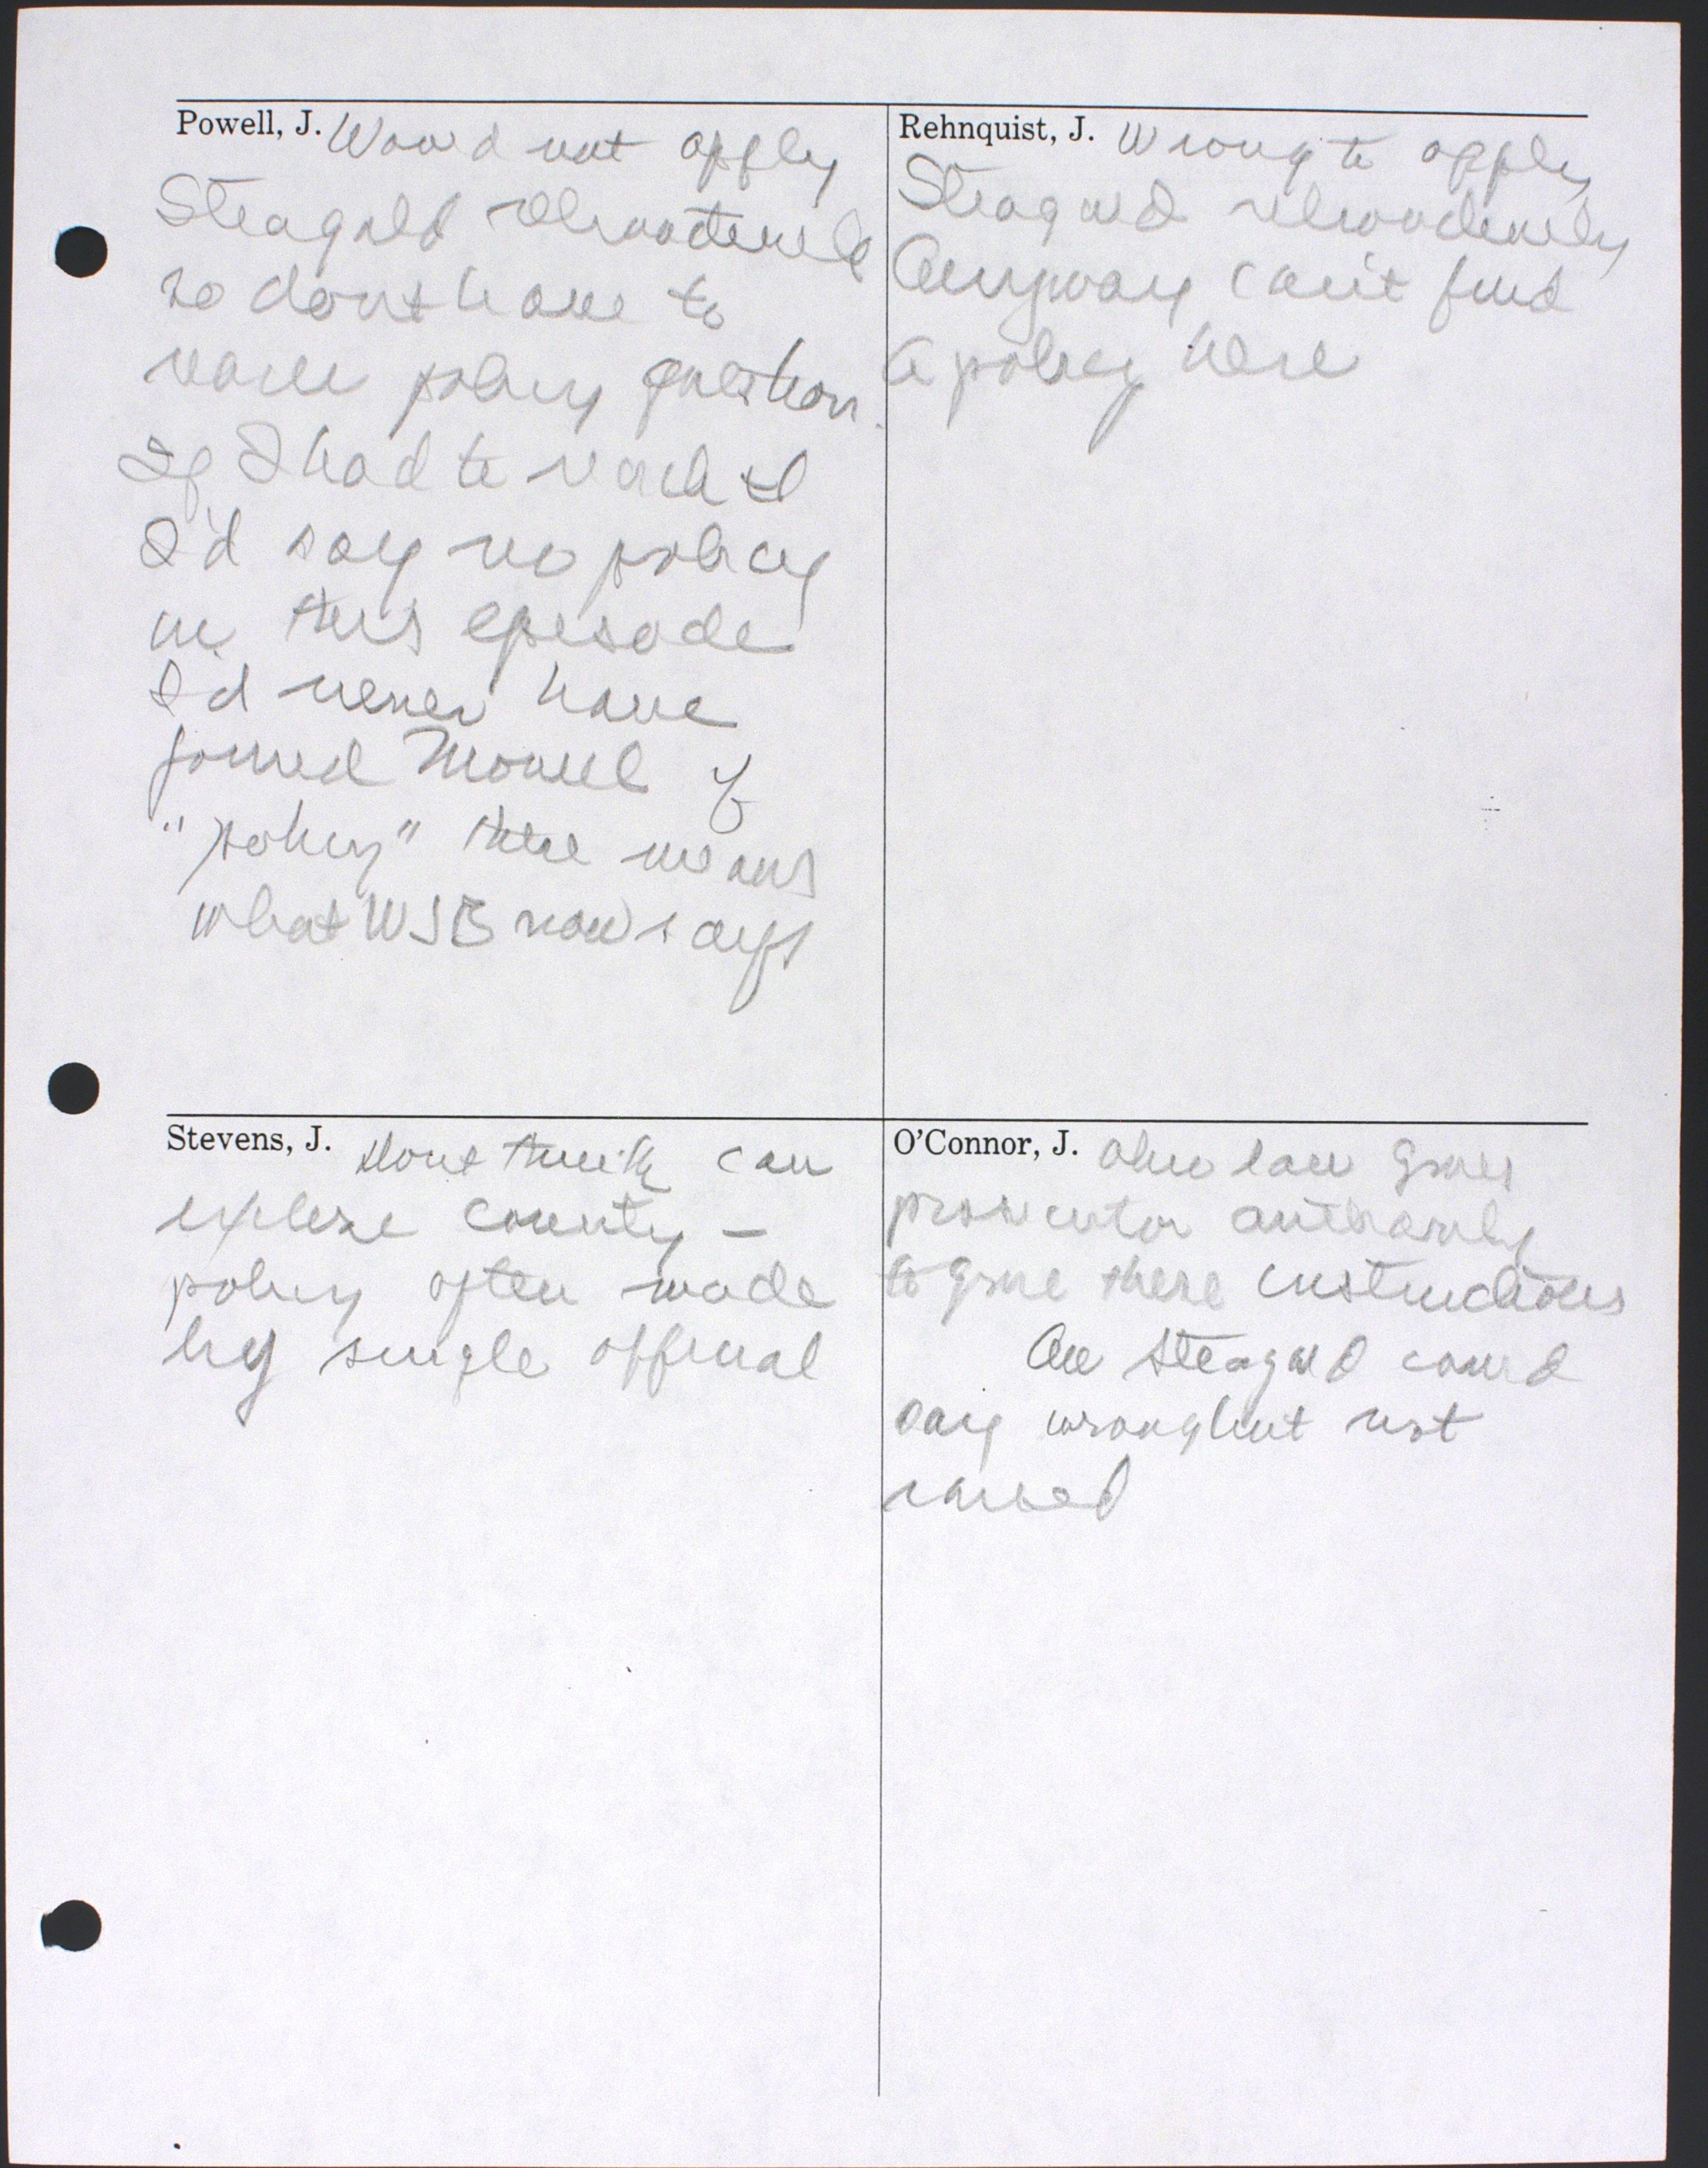 Powell, J. Would not apply
Steagald retroactively
so dont have to
reach policy question.
If I had to reach it
I'd say no policy
in this episode
I'd never have
joined Monell if
"policy" there means
what WJB now says
Rehnquist, J. Wrong to apply
Steagald retroactively
Anyway can't find
a policy here
Stevens, J. Dont think can
excuse county -
policy often made
by single official
O'Connor, J. Ohio law gives
prosecutor authority
to give these instructions
On Steagald could
say wrong but not
raised